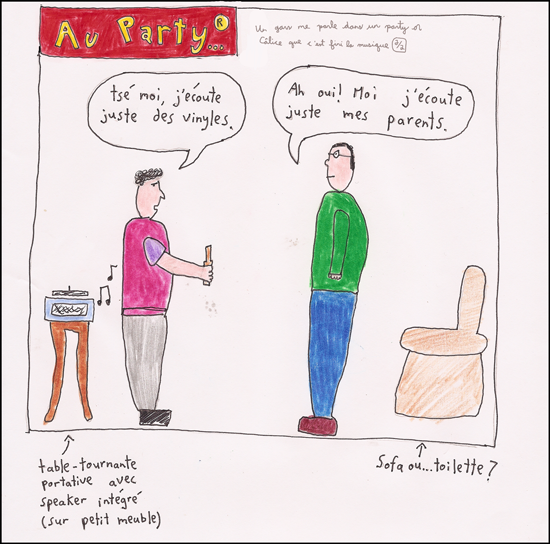 Au Party...®
Un gars me parle dans un party où
Câlice que c'est fini la musique 2/2
tsé moi, j'écoute
juste des vinyles.
Ah oui! Moi j'écoute
juste mes parents.
table-tournante
portative avec
speaker intégré
(sur petit meuble)
Sofa ou...toilette?